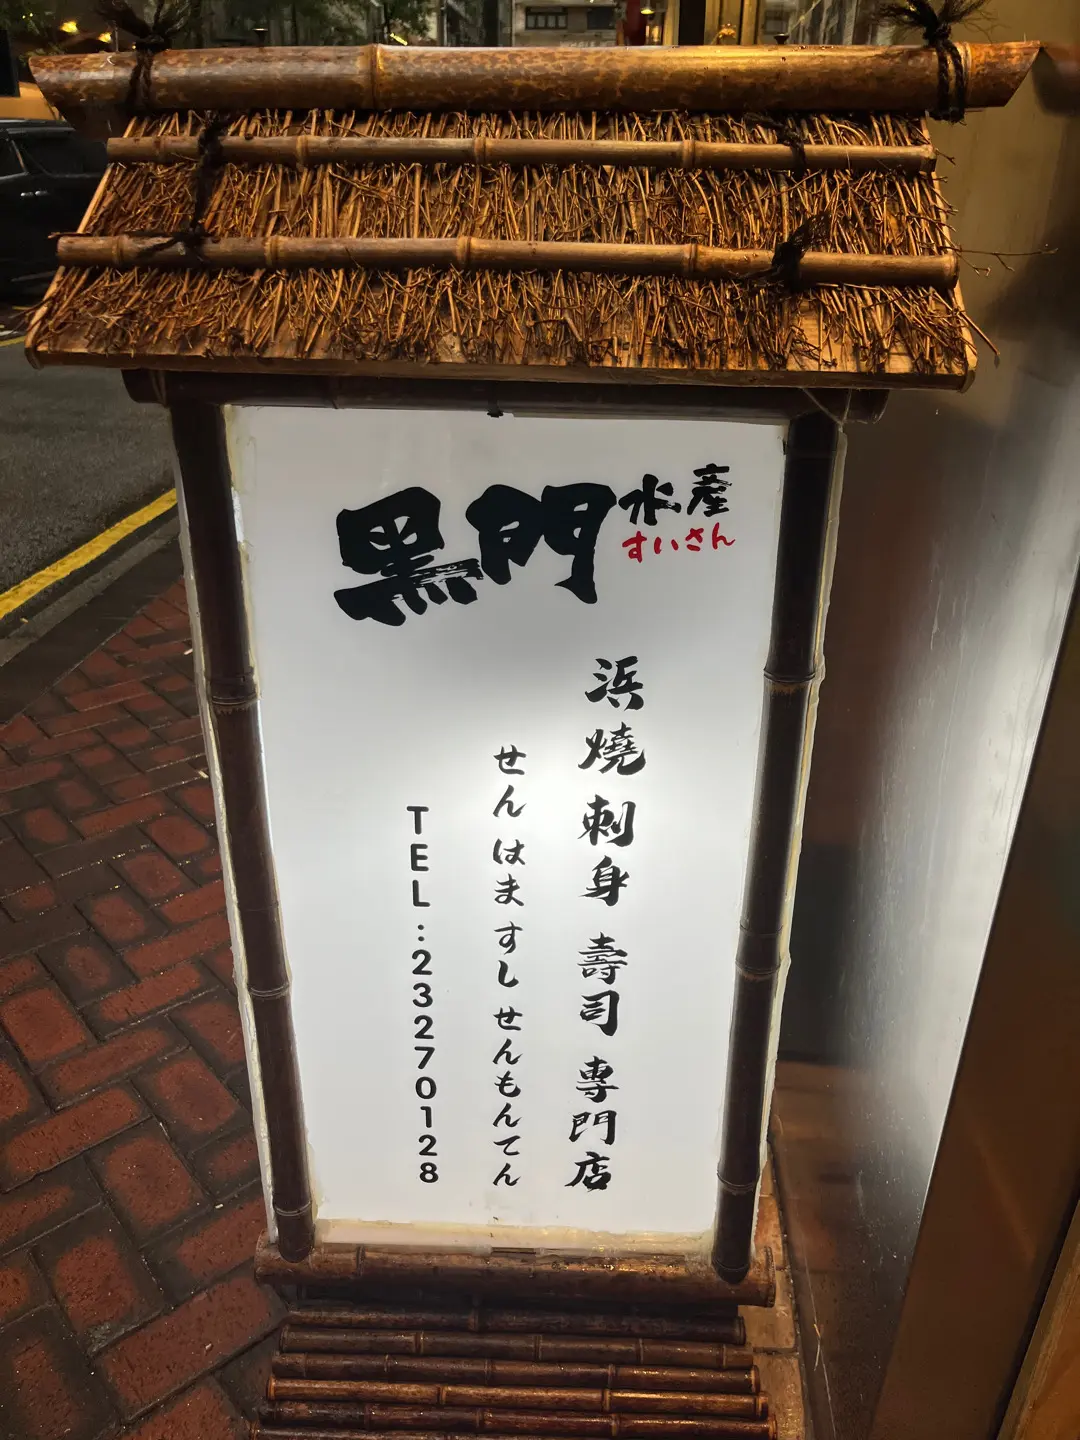 黑門 水產
すいさん
浜燒 刺身 壽司 専門店
せん はま すし せんもんてん
TEL:23270128